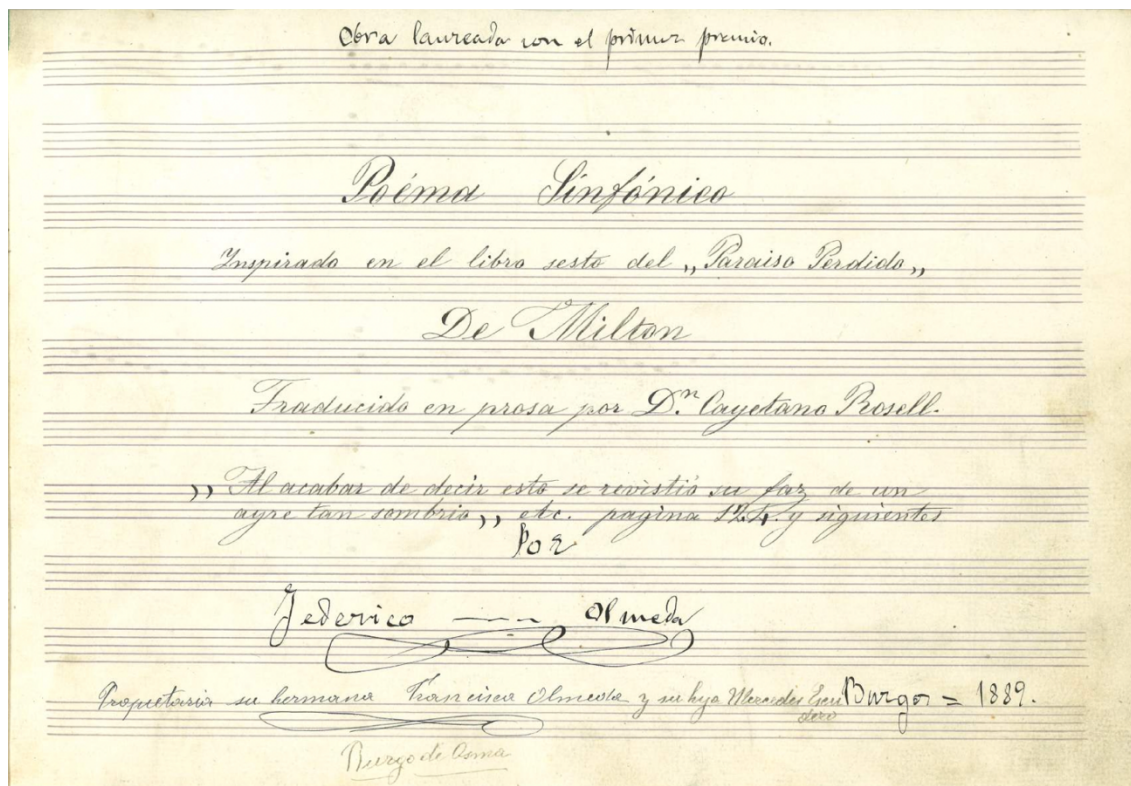 Obra laureada con el primer premio.
Poéma Sinfónico
Inspirado en el libro sesto del „Paraiso Perdido„
De Milton
Traducido en prosa por D.n Cayetano Rosell.
„Al acabar de decir esto se revistió su faz de un
ayre tan sombrio„ etc. pagina 124. y siguientes
Por
Federico — Olmeda
Propietaria su hermana Francisca Olmeda y su hija Mercedes Escu
dero
Burgos = 1889.
Burgo de Osma